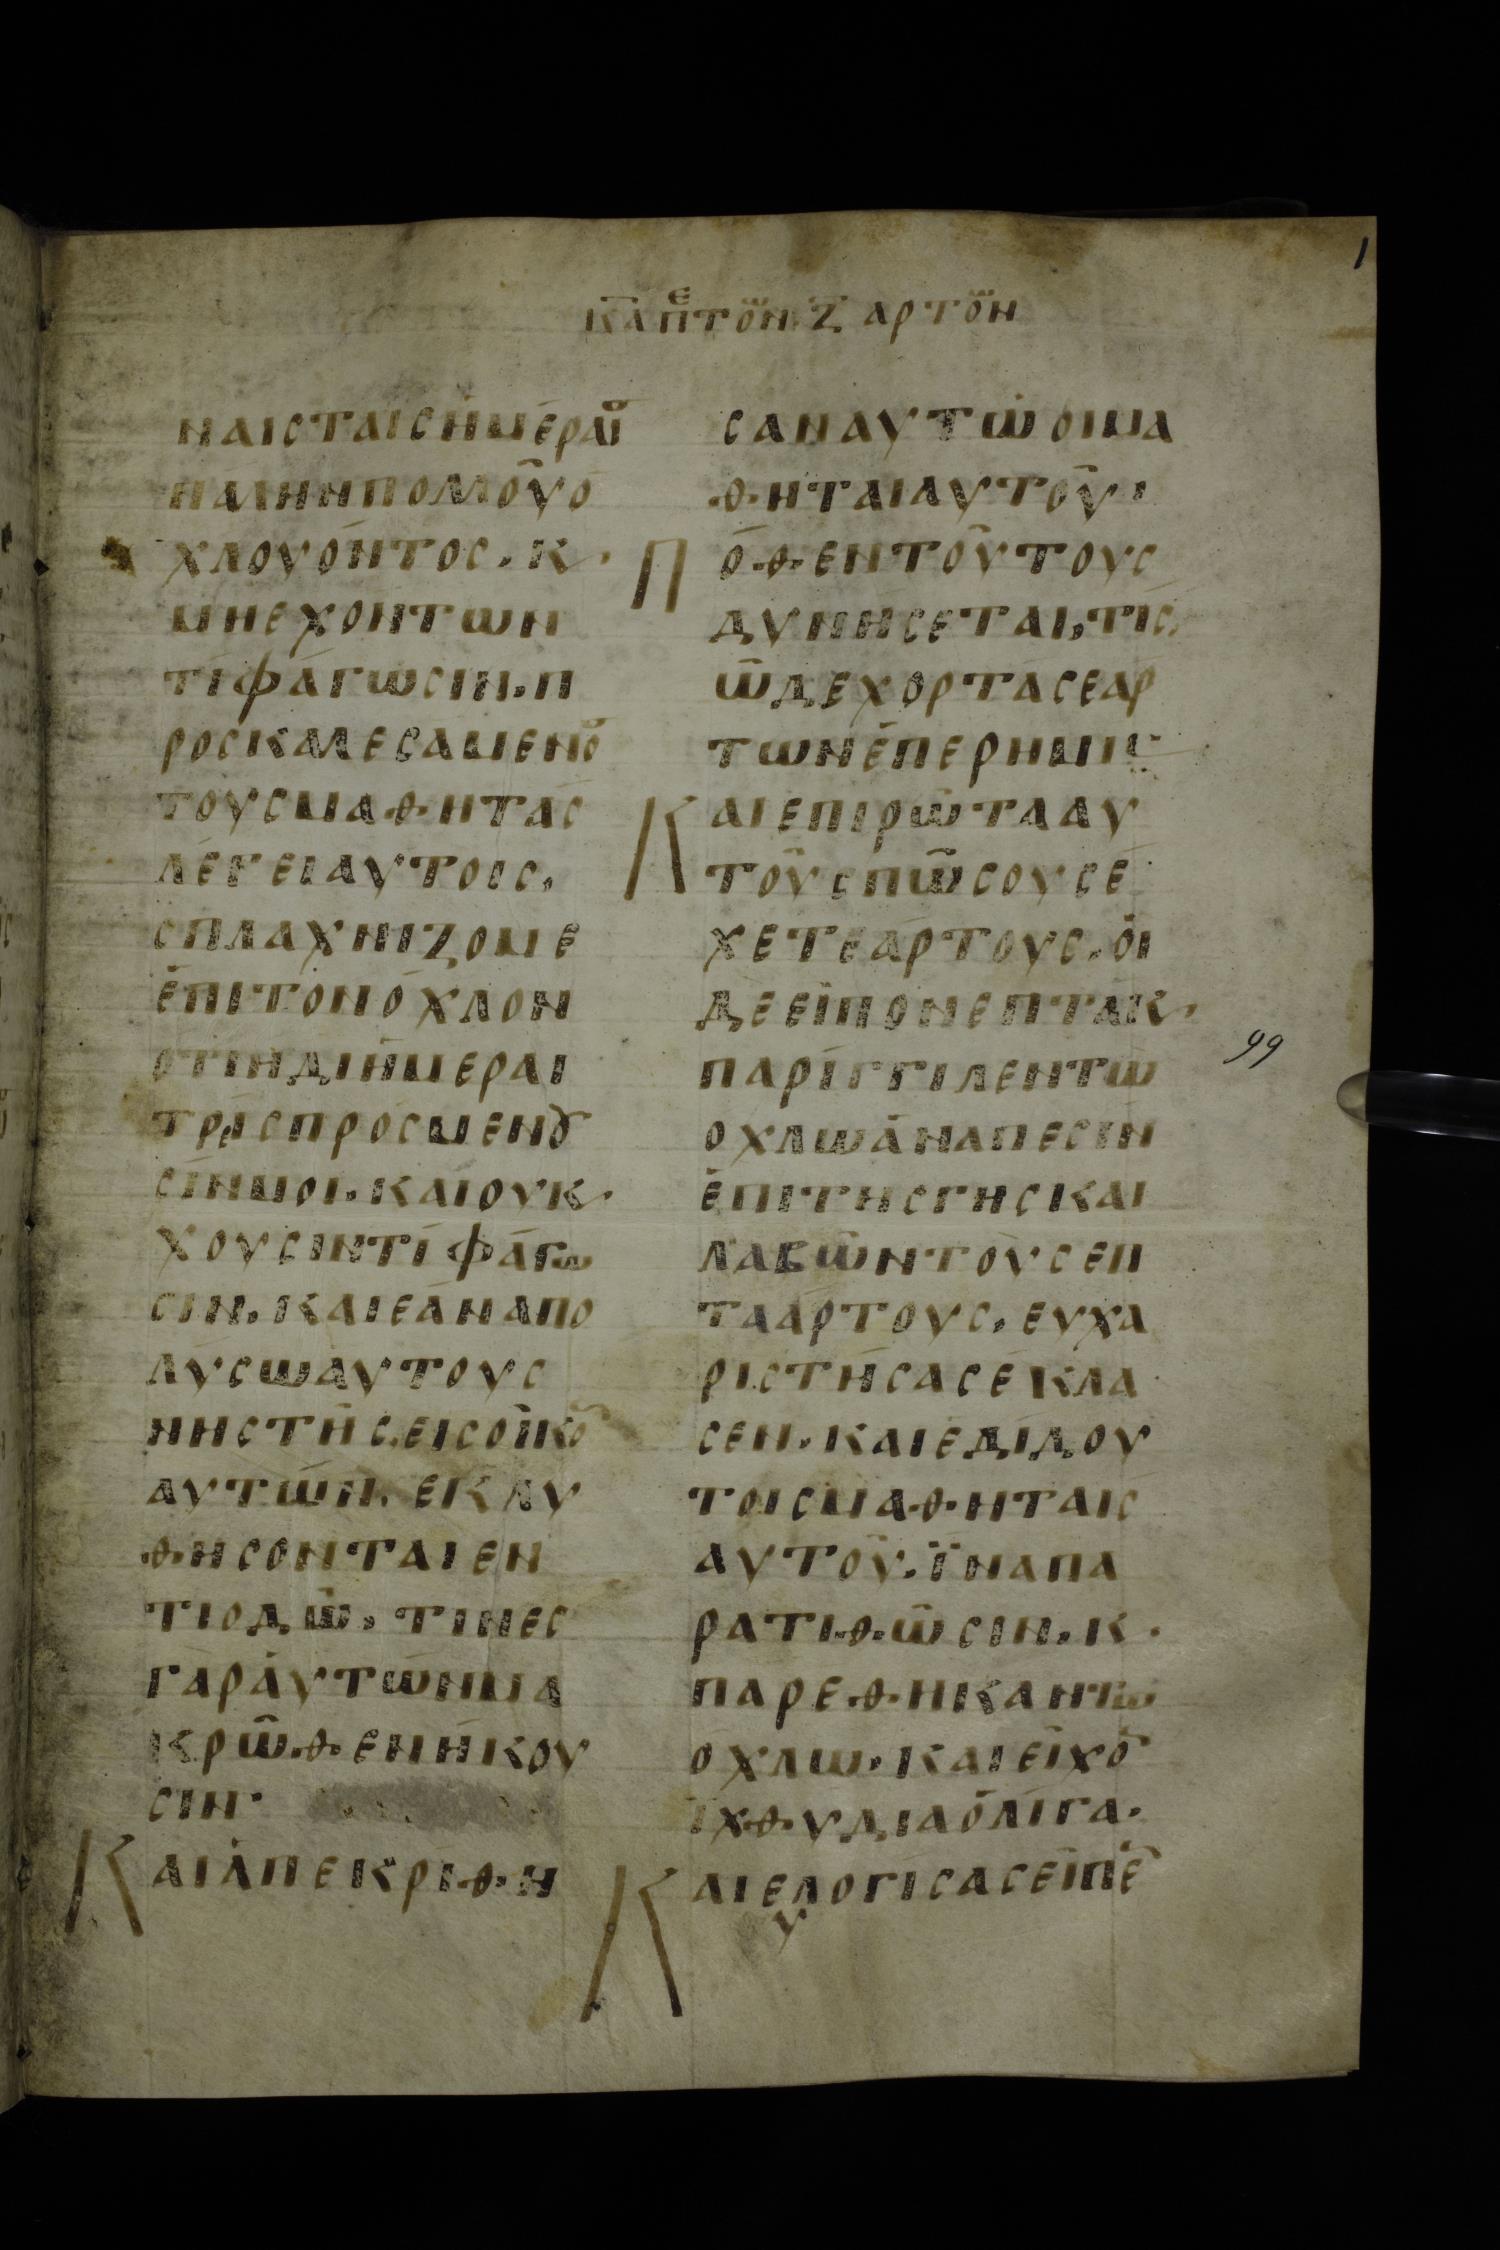 ΚΑΠΕΤΟΝ Ζ ΑΡΤΟΝ
1
ΝΑΙΣΤΑΙΣΗΜΕΡΑΙ
ΠΑΛΗΝΠΟΛΛΟΥΟ
ΧΛΟΥΟΝΤΟΣ. Κ.
ΜΗΕΧΟΝΤΩΝ
ΤΙΦΑΓΩΣΙΝ. Π
ΡΟΣΚΑΛΕΣΑΜΕΝΟ
ΤΟΥΣΜΑΘΗΤΑΣ
ΛΕΓΕΙΑΥΤΟΙΣ.
ΣΠΛΑΧΝΙΖΟΜΕ
ΕΠΙΤΟΝΟΧΛΟΝ
ΟΤΙΗΔΙΗΜΕΡΑΙ
ΤΡΕΙΣΠΡΟΣΜΕΝȢ
ΣΙΝΜΟΙ. ΚΑΙΟΥΚ.
ΧΟΥΣΙΝΤΙΦΑΓΩ
ΣΙΝ. ΚΑΙΕΑΝΑΠΟ
ΛΥΣΩΑΥΤΟΥΣ
ΝΗΣΤΗΣ.ΕΙΣΟΙΚΟ
ΑΥΤΩΝ. ΕΚΛΥ
ΘΗΣΟΝΤΑΙΕΝ
ΤΙΟΔΩ. ΤΙΝΕΣ
ΓΑΡΑΥΤΩΝΜΑ
ΚΡΩΘΕΝΗΚΟΥ
ΣΙΝ.
ΚΑΙΑΠΕΚΡΙΘΗ
ΣΑΝΑΥΤΩΟΙΜΑ
ΘΗΤΑΙΑΥΤΟΥ.
ΠΟΘΕΝΤΟΥΤΟΥΣ
ΔΥΝΗΣΕΤΑΙ, ΤΙΣ,
ΩΔΕΧΟΡΤΑΣΕΑΡ
ΤΩΝΕΠΕΡΗΜΙΣ
ΚΑΙΕΠΙΡΩΤΑΑΥ
ΤΟΥΣΠΩΣΟΥΣΕ
ΧΕΤΕΑΡΤΟΥΣ. ΟΙ
ΔΕΕΙΠΟΝΕΠΤΑΚ.
ΠΑΡΙΓΓΙΛΕΝΤΩ
99
ΟΧΛΩΑΝΑΠΕΣΙΝ
ΕΠΙΤΗΣΓΗΣΚΑΙ
ΛΑΒΩΝΤΟΥΣΕΠ
ΤΑΑΡΤΟΥΣ. ΕΥΧΑ
ΡΙΣΤΗΣΑΣΕΚΛΑ
ΣΕΝ. ΚΑΙΕΔΙΔΟΥ
ΤΟΙΣΜΑΘΗΤΑΙΣ
ΑΥΤΟΥ. ΪΝΑΠΑ
ΡΑΤΙΘΩΣΙΝ. Κ.
ΠΑΡΕΘΗΚΑΝΤΩ
ΟΧΛΩ. ΚΑΙΕΙΧΟ
ΙΧΘΥΔΙΑΟΛΙΓΑ.
ΚΑΙΕΥΛΟΓΙΣΑΣΕΙΠΕ